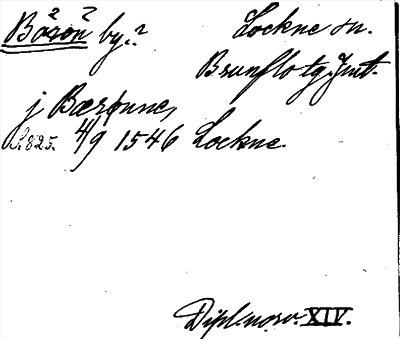 Bösön by.? Lockne sn.
Brunflo tg. Jmt.
j Bærønne,
S. 825. 4/9 1546 Lockne.
Dipl. norv. XIV.